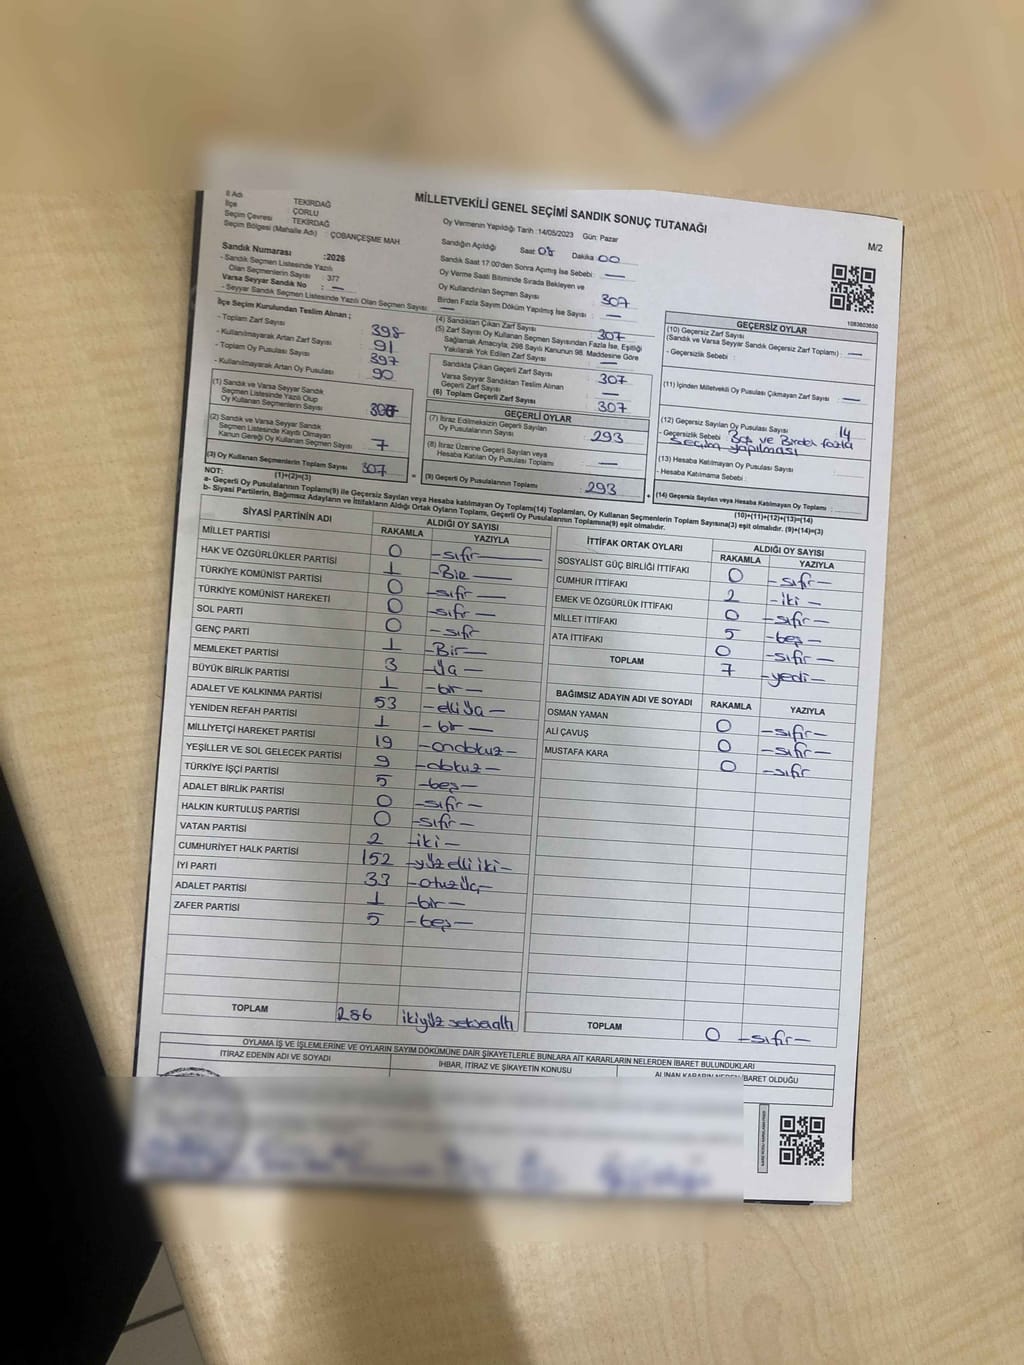 MİLLETVEKİLİ GENEL SEÇİMİ SANDIK SONUÇ TUTANAĞI
M/2
İl Adı TEKİRDAĞ
İlçe ÇORLU
Seçim Çevresi TEKİRDAĞ
Seçim Bölgesi (Mahalle Adı) : ÇOBANÇEŞME MAH
Sandık Numarası :2026
- Sandık Seçmen Listesinde Yazılı
Olan Seçmenlerin Sayısı : 377
Varsa Seyyar Sandık No : —
- Seyyar Sandık Seçmen Listesinde Yazılı Olan Seçmen Sayısı: —
Oy Vermenin Yapıldığı Tarih :14/05/2023 Gün: Pazar
Sandığın Açıldığı Saat 08 Dakika 00
Sandık Saat 17:00'den Sonra Açımış İse Sebebi : —
Oy Verme Saati Bitiminde Sırada Bekleyen ve
Oy Kullandırılan Seçmen Sayısı 307
Birden Fazla Sayım Döküm Yapılmış İse Sayısı : —
İlçe Seçim Kurulundan Teslim Alınan ;
- Toplam Zarf Sayısı : 398
- Kullanılmayarak Artan Zarf Sayısı : 91
- Toplam Oy Pusulası Sayısı : 397
- Kullanılmayarak Artan Oy Pusulası : 90
(1) Sandık ve Varsa Seyyar Sandık
Seçmen Listesinde Yazılı Olup
Oy Kullanan Seçmenlerin Sayısı :
(2) Sandık ve Varsa Seyyar Sandık
Seçmen Listesinde Kaydı Olmayan
Kanun Gereği Oy Kullanan Seçmen Sayısı : 7
(3) Oy Kullanan Seçmenlerin Toplam Sayısı : 307
(1)+(2)=(3)
(4) Sandıktan Çıkan Zarf Sayısı 307
(5) Zarf Sayısı Oy Kullanan Seçmen Sayısından Fazla İse, Eşitliği
Sağlamak Amacıyla, 298 Sayılı Kanunun 98. Maddesine Göre
Yakılarak Yok Edilen Zarf Sayısı : —
Sandıkta Çıkan Geçerli Zarf Sayısı : 307
Varsa Seyyar Sandıktan Teslim Alınan
Geçerli Zarf Sayısı : —
(6) Toplam Geçerli Zarf Sayısı : 307
GEÇERLİ OYLAR
(7) İtiraz Edilmeksizin Geçerli Sayılan
Oy Pusulalarının Sayısı : 293
(8) İtiraz Üzerine Geçerli Sayılan veya
Hesaba Katılan Oy Pusulası Toplamı : —
(9) Geçerli Oy Pusulalarının Toplamı : 293
1083603650
GEÇERSİZ OYLAR
(10) Geçersiz Zarf Sayısı
(Sandık ve Varsa Seyyar Sandık Geçersiz Zarf Toplamı) : —
- Geçersizlik Sebebi :
(11) İçinden Milletvekili Oy Pusulası Çıkmayan Zarf Sayısı : —
(12) Geçersiz Sayılan Oy Pusulası Sayısı : 14
- Geçersizlik Sebebi : Boş ve Birden fazla
seçim yapılması
(13) Hesaba Katılmayan Oy Pusulası Sayısı :
- Hesaba Katılmama Sebebi :
(14) Geçersiz Sayılan veya Hesaba Katılmayan Oy Toplamı :
(10)+(11)+(12)+(13)=(14)
NOT:
a- Geçerli Oy Pusulalarının Toplamı(9) ile Geçersiz Sayılan veya Hesaba katılmayan Oy Toplamı(14) Toplamları, Oy Kullanan Seçmenlerin Toplam Sayısına(3) eşit olmalıdır. (9)+(14)=(3)
b- Siyasi Partilerin, Bağımsız Adayların ve İttifakların Aldığı Ortak Oyların Toplamı, Geçerli Oy Pusulalarının Toplamına(9) eşit olmalıdır.
SİYASİ PARTİNİN ADI ALDIĞI OY SAYISI
RAKAMLA YAZIYLA
MİLLET PARTİSİ 0 -sıfır—
HAK VE ÖZGÜRLÜKLER PARTİSİ 1 -Bir—
TÜRKİYE KOMÜNİST PARTİSİ 0 -sıfır—
TÜRKİYE KOMÜNİST HAREKETİ 0 -sıfır—
SOL PARTİ 0 -sıfır
GENÇ PARTİ 1 -Bir—
MEMLEKET PARTİSİ 3 -Üç—
BÜYÜK BİRLİK PARTİSİ 1 -bir—
ADALET VE KALKINMA PARTİSİ 53 -elli üç—
YENİDEN REFAH PARTİSİ 1 -bir—
MİLLİYETÇİ HAREKET PARTİSİ 19 -ondokuz-
YEŞİLLER VE SOL GELECEK PARTİSİ 9 -dokuz-
TÜRKİYE İŞÇİ PARTİSİ 5 -beş—
ADALET BİRLİK PARTİSİ 0 -sıfır—
HALKIN KURTULUŞ PARTİSİ 0 -sıfır—
VATAN PARTİSİ 2 -iki—
CUMHURİYET HALK PARTİSİ 152 -yüz elli iki-
İYİ PARTİ 33 -otuz üç-
ADALET PARTİSİ 1 -bir—
ZAFER PARTİSİ 5 -beş—
TOPLAM 286 ikiyüz seksenaltı
İTTİFAK ORTAK OYLARI ALDIĞI OY SAYISI
RAKAMLA YAZIYLA
SOSYALİST GÜÇ BİRLİĞİ İTTİFAKI 0 -sıfır—
CUMHUR İTTİFAKI 2 -iki—
EMEK VE ÖZGÜRLÜK İTTİFAKI 0 -sıfır—
MİLLET İTTİFAKI 5 -beş—
ATA İTTİFAKI 0 -sıfır—
TOPLAM 7 -yedi—
BAĞIMSIZ ADAYIN ADI VE SOYADI RAKAMLA YAZIYLA
OSMAN YAMAN 0 -sıfır—
ALİ ÇAVUŞ 0 -sıfır—
MUSTAFA KARA 0 -sıfır
TOPLAM 0 -sıfır—
OYLAMA İŞ VE İŞLEMLERİNE VE OYLARIN SAYIM DÖKÜMÜNE DAİR ŞİKAYETLERLE BUNLARA AİT KARARLARIN NELERDEN İBARET BULUNDUKLARI
İTİRAZ EDENİN ADI VE SOYADI
İHBAR, İTİRAZ VE ŞİKAYETİN KONUSU
ALINAN KARARIN NEDEN İBARET OLDUĞU